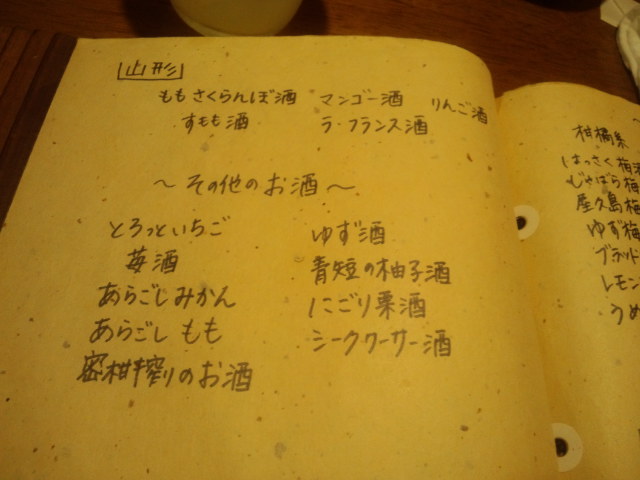 山形
ももさくらんぼ酒 マンゴー酒 りんご酒
すもも酒 ラ・フランス酒
～その他のお酒～
とろっといちご ゆず酒
苺酒 青短の柚子酒
あらごしみかん にごり栗酒
あらごしもも シークワーサー酒
密柑搾りのお酒
柑橘系
はっさく梅酒
じゃばら梅
屋久島梅
ゆず梅
ブラッド
レモン
うめ